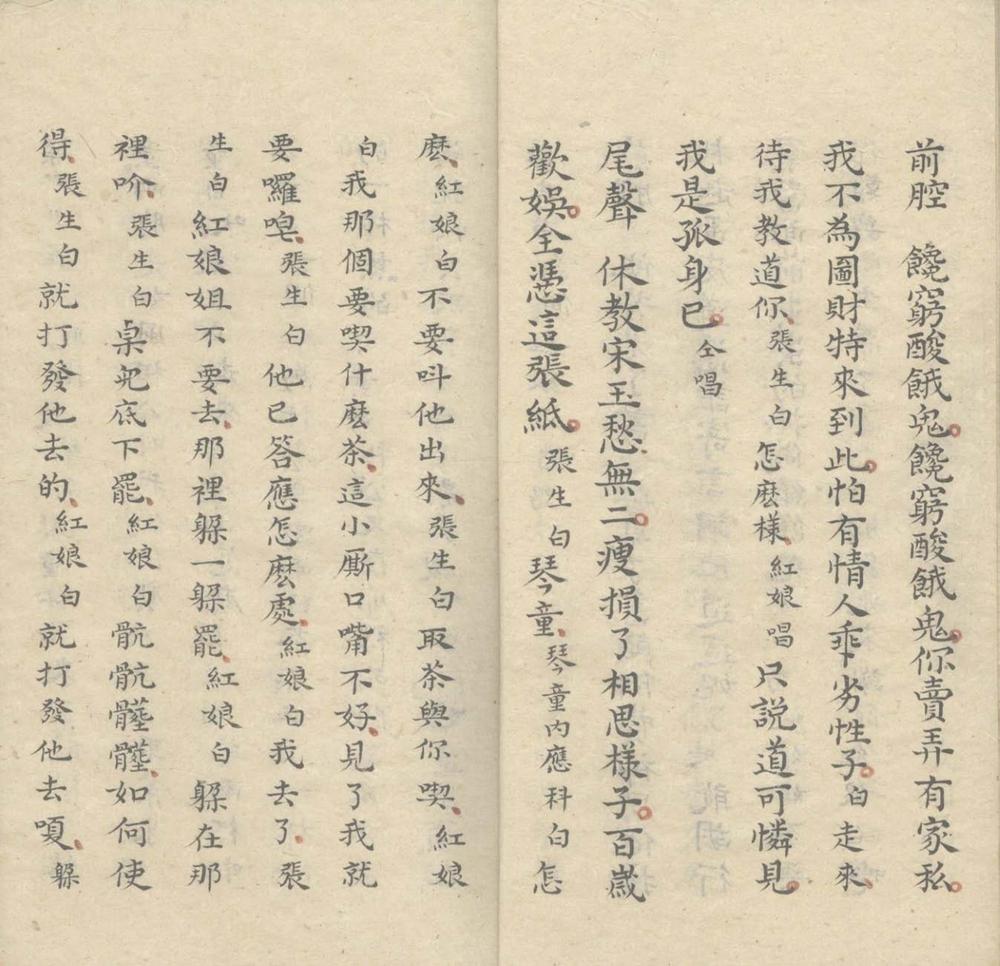 前腔　饞窮酸餓鬼。饞窮酸餓鬼。你賣弄有家私。
我不為圖財特來到此。怕有情人乖劣性子。白走來、
待我教道你、張生白怎麽樣、紅娘唱只説道可憐見。
我是孤身已。仝唱
尾聲　休教宋玉愁無二。瘦損了相思樣子。百歲
歡娛。全憑這張紙。張生白琴童、琴童内應科白怎
麽、紅娘白不要呌他出來、張生白取茶與你喫、紅娘
白我那個要喫什麽茶、這小厮口嘴不好、見了我就
要囉唣、張生白他已答應怎麽處、紅娘白我去了、張
生白紅娘姐不要去、那裡躱一躱罷、紅娘白躱在那
裡吤、張生白桌兒底下罷、紅娘白骯骯髒髒、如何使
得、張生白就打發他去的、紅娘白就打發他去嗄、躱